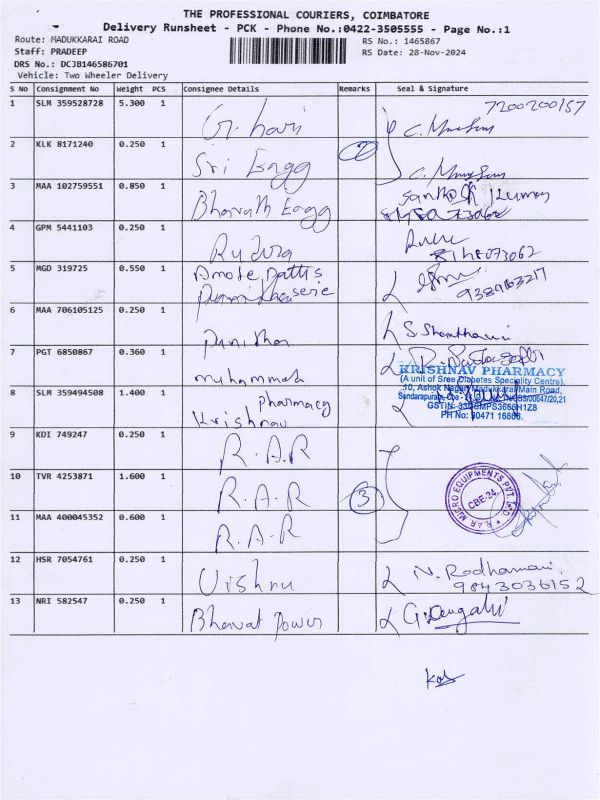 THE PROFESSIONAL COURIERS, COIMBATORE
Delivery Runsheet - PCK - Phone No.:0422-3505555 - Page No.:1
Route: MADUKKARAI ROAD
RS No.: 1465867
Staff: PRADEEP
RS Date: 28-Nov-2024
DRS No.: DCJB146586701
Vehicle: Two Wheeler Delivery
S No Consignment No Weight PCS Consignee Details Remarks Seal & Signature
1 SLM 359528728 5.300 1 G. hari 7200200157
2 KLK 8171240 0.250 1 Sri Engg 2
3 MAA 102759551 0.850 1 Bharath Engg Santhosh Kumar
4 GPM 5441103 0.250 1 Rudra
5 MGD 319725 0.550 1
6 MAA 706105125 0.250 1
7 PGT 6850867 0.360 1
8 SLM 359494508 1.400 1 Krishnav pharmacy
KRISHNAV PHARMACY
(A unit of Sree Diabetes Speciality Centre),
10, Ashok Nagar, Madukkarai Main Road,
Sundarapuram, Cbe -
GSTIN:
PH No: 90471 16666.
9 KDI 749247 0.250 1 R.A.R
10 TVR 4253871 1.600 1 R.A.R 3
R.A.R MICRO EQUIPMENTS PVT. LTD
CBE-24.
11 MAA 400045352 0.600 1 R.A.R
12 HSR 7054761 0.250 1 Vishnu N. Radhamani
9843036152
13 NRI 582547 0.250 1 Bharat Power